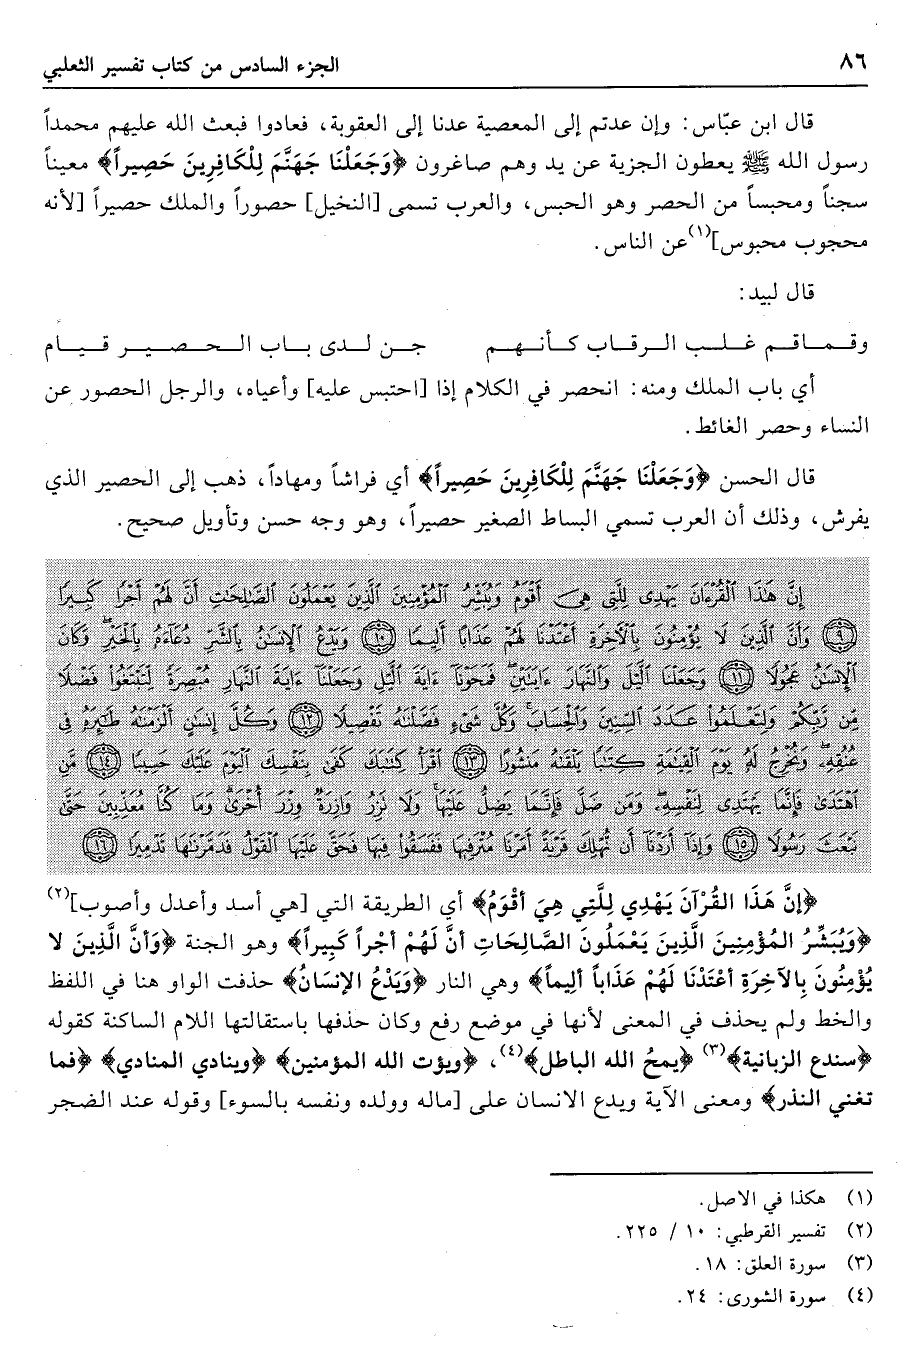 ٨٦ الجزء السادس من كتاب تفسير الثعلبي
قال ابن عبّاس: وإن عدتم إلى المعصية عدنا إلى العقوبة، فعادوا فبعث الله عليهم محمداً
رسول الله ﷺ يعطون الجزية عن يد وهم صاغرون ﴿وَجَعَلْنَا جَهَنَّمَ لِلْكَافِرِينَ حَصِيراً﴾ معيناً
سجناً ومحبساً من الحصر وهو الحبس، والعرب تسمى [النخيل] حصوراً والملك حصيراً [لأنه
محجوب محبوس](١)عن الناس.
قال لبيد:
وقماقم غلب الرقاب كأنهم جن لدى باب الحصير قيام
أي باب الملك ومنه: انحصر في الكلام إذا [احتبس عليه] وأعياه، والرجل الحصور عن
النساء وحصر الغائط.
قال الحسن ﴿وَجَعَلْنَا جَهَنَّمَ لِلْكَافِرِينَ حَصِيراً﴾ أي فراشاً ومهاداً، ذهب إلى الحصير الذي
يفرش، وذلك أن العرب تسمي البساط الصغير حصيراً، وهو وجه حسن وتأويل صحيح.
إِنَّ هَٰذَا ٱلْقُرْءَانَ يَهْدِى لِلَّتِى هِىَ أَقْوَمُ وَيُبَشِّرُ ٱلْمُؤْمِنِينَ ٱلَّذِينَ يَعْمَلُونَ ٱلصَّٰلِحَٰتِ أَنَّ لَهُمْ أَجْرًا كَبِيرًا
﴿٩﴾ وَأَنَّ ٱلَّذِينَ لَا يُؤْمِنُونَ بِٱلْأَخِرَةِ أَعْتَدْنَا لَهُمْ عَذَابًا أَلِيمًا ﴿١٠﴾ وَيَدْعُ ٱلْإِنسَٰنُ بِٱلشَّرِّ دُعَآءَهُۥ بِٱلْخَيْرِ ۖ وَكَانَ
ٱلْإِنسَٰنُ عَجُولًا ﴿١١﴾ وَجَعَلْنَا ٱلَّيْلَ وَٱلنَّهَارَ ءَايَتَيْنِ ۖ فَمَحَوْنَآ ءَايَةَ ٱلَّيْلِ وَجَعَلْنَآ ءَايَةَ ٱلنَّهَارِ مُبْصِرَةً لِّتَبْتَغُوا۟ فَضْلًا
مِّن رَّبِّكُمْ وَلِتَعْلَمُوا۟ عَدَدَ ٱلسِّنِينَ وَٱلْحِسَابَ ۚ وَكُلَّ شَىْءٍ فَصَّلْنَٰهُ تَفْصِيلًا ﴿١٢﴾ وَكُلَّ إِنسَٰنٍ أَلْزَمْنَٰهُ طَٰٓئِرَهُۥ فِى
عُنُقِهِۦ ۖ وَنُخْرِجُ لَهُۥ يَوْمَ ٱلْقِيَٰمَةِ كِتَٰبًا يَلْقَىٰهُ مَنشُورًا ﴿١٣﴾ ٱقْرَأْ كِتَٰبَكَ كَفَىٰ بِنَفْسِكَ ٱلْيَوْمَ عَلَيْكَ حَسِيبًا ﴿١٤﴾ مَّنِ
ٱهْتَدَىٰ فَإِنَّمَا يَهْتَدِى لِنَفْسِهِۦ ۖ وَمَن ضَلَّ فَإِنَّمَا يَضِلُّ عَلَيْهَا ۚ وَلَا تَزِرُ وَازِرَةٌ وِزْرَ أُخْرَىٰ ۗ وَمَا كُنَّا مُعَذِّبِينَ حَتَّىٰ
نَبْعَثَ رَسُولًا ﴿١٥﴾ وَإِذَآ أَرَدْنَآ أَن نُّهْلِكَ قَرْيَةً أَمَرْنَا مُتْرَفِيهَا فَفَسَقُوا۟ فِيهَا فَحَقَّ عَلَيْهَا ٱلْقَوْلُ فَدَمَّرْنَٰهَا تَدْمِيرًا ﴿١٦﴾
﴿إِنَّ هَذَا القُرْآنَ يَهْدِي لِلَّتِي هِيَ أقْوَمُ﴾ أي الطريقة التي [هي أسد وأعدل وأصوب](٢)
﴿وَيُبَشِّرُ المُؤْمِنِينَ الَّذِينَ يَعْمَلُونَ الصَّالِحَاتِ أنَّ لَهُمْ أجْراً كَبِيراً﴾ وهو الجنة ﴿وَأنَّ الَّذِينَ لا
يُؤْمِنُونَ بِالآخِرَةِ أعْتَدْنَا لَهُمْ عَذَاباً ألِيماً﴾ وهي النار ﴿وَيَدْعُ الإنْسَانُ﴾ حذفت الواو هنا في اللفظ
والخط ولم يحذف في المعنى لأنها في موضع رفع وكان حذفها باستقالتها اللام الساكنة كقوله
﴿سندع الزبانية﴾(٣) ﴿يمحُ الله الباطل﴾(٤)، ﴿ويؤت الله المؤمنين﴾ ﴿وينادي المنادي﴾ ﴿فما
تغني النذر﴾ ومعنى الآية ويدع الانسان على [ماله وولده ونفسه بالسوء] وقوله عند الضجر
(١) هكذا في الاصل.
(٢) تفسير القرطبي: ١٠ / ٢٢٥.
(٣) سورة العلق: ١٨.
(٤) سورة الشورى: ٢٤.